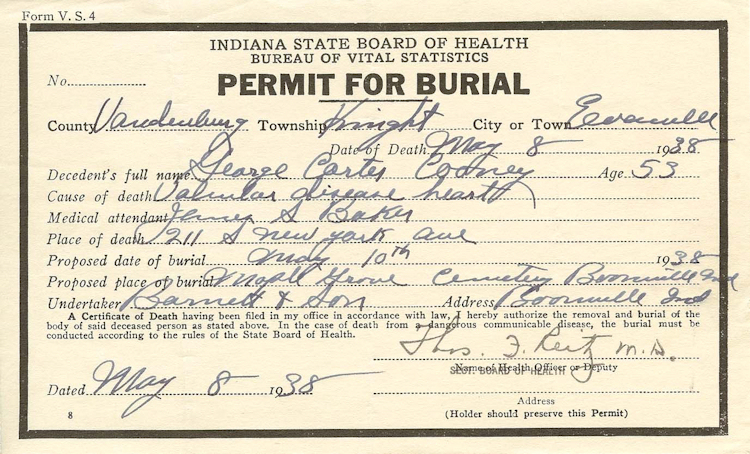 Form V. S. 4
INDIANA STATE BOARD OF HEALTH
BUREAU OF VITAL STATISTICS
No.
PERMIT FOR BURIAL
County Vandenburg Township Knight City or Town Evansville
Date of Death May 8 1938
Decedent's full name George Carter Cooney Age 53
Cause of death Valvular disease heart
Medical attendant James S Baker
Place of death 211 S new york ave
Proposed date of burial May 10th 1938
Proposed place of burial Maple Grove Cemetery Boonville Ind
Undertaker Barnett & Son Address Boonville Ind
A Certificate of Death having been filed in my office in accordance with law, I hereby authorize the removal and burial of the
body of said deceased person as stated above. In the case of death from a dangerous communicable disease, the burial must be
conducted according to the rules of the State Board of Health.
Thos. J. Leitz M.D.
Name of Health Officer or Deputy
SECY. BOARD OF HEALTH
Dated May 8 1938
Address
8
(Holder should preserve this Permit)